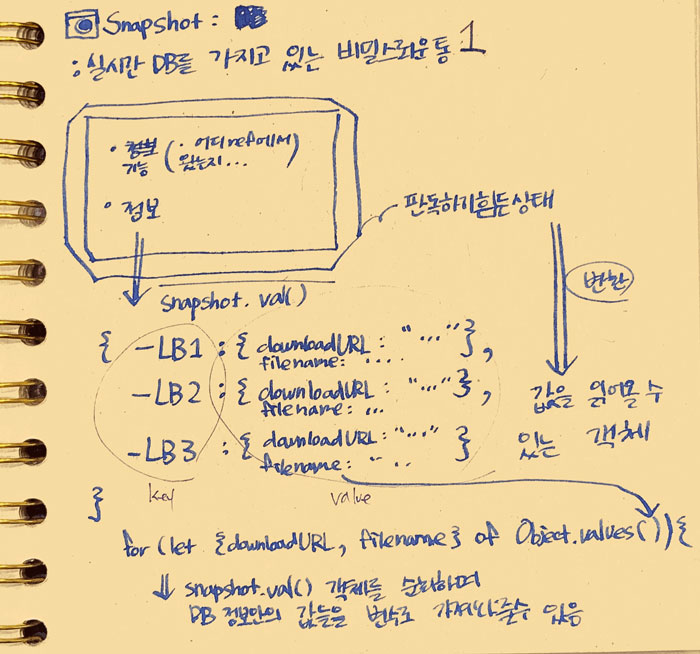 Snapshot :
: 실시간 DB를 가지고 있는 비밀스러운 통 1
• 기능 ( • 어디 ref에서
왔는지... )
• 정보
판독하기 힘든 상태
snapshot.val()
변환
{ -LB1 : { downloadURL : "...." },
filename : ....
-LB2 : { downloadURL : "...." },
filename : ...
-LB3 : { downloadURL : "...." }
filename : " ..
값을 읽어올 수
있는 객체
key
value
}
for (let {downloadURL, filename} of Object.values( )) {
⇓ snapshot.val() 객체를 순회하며
DB 정보안의 값들을 변수로 가져와 줄수 있음